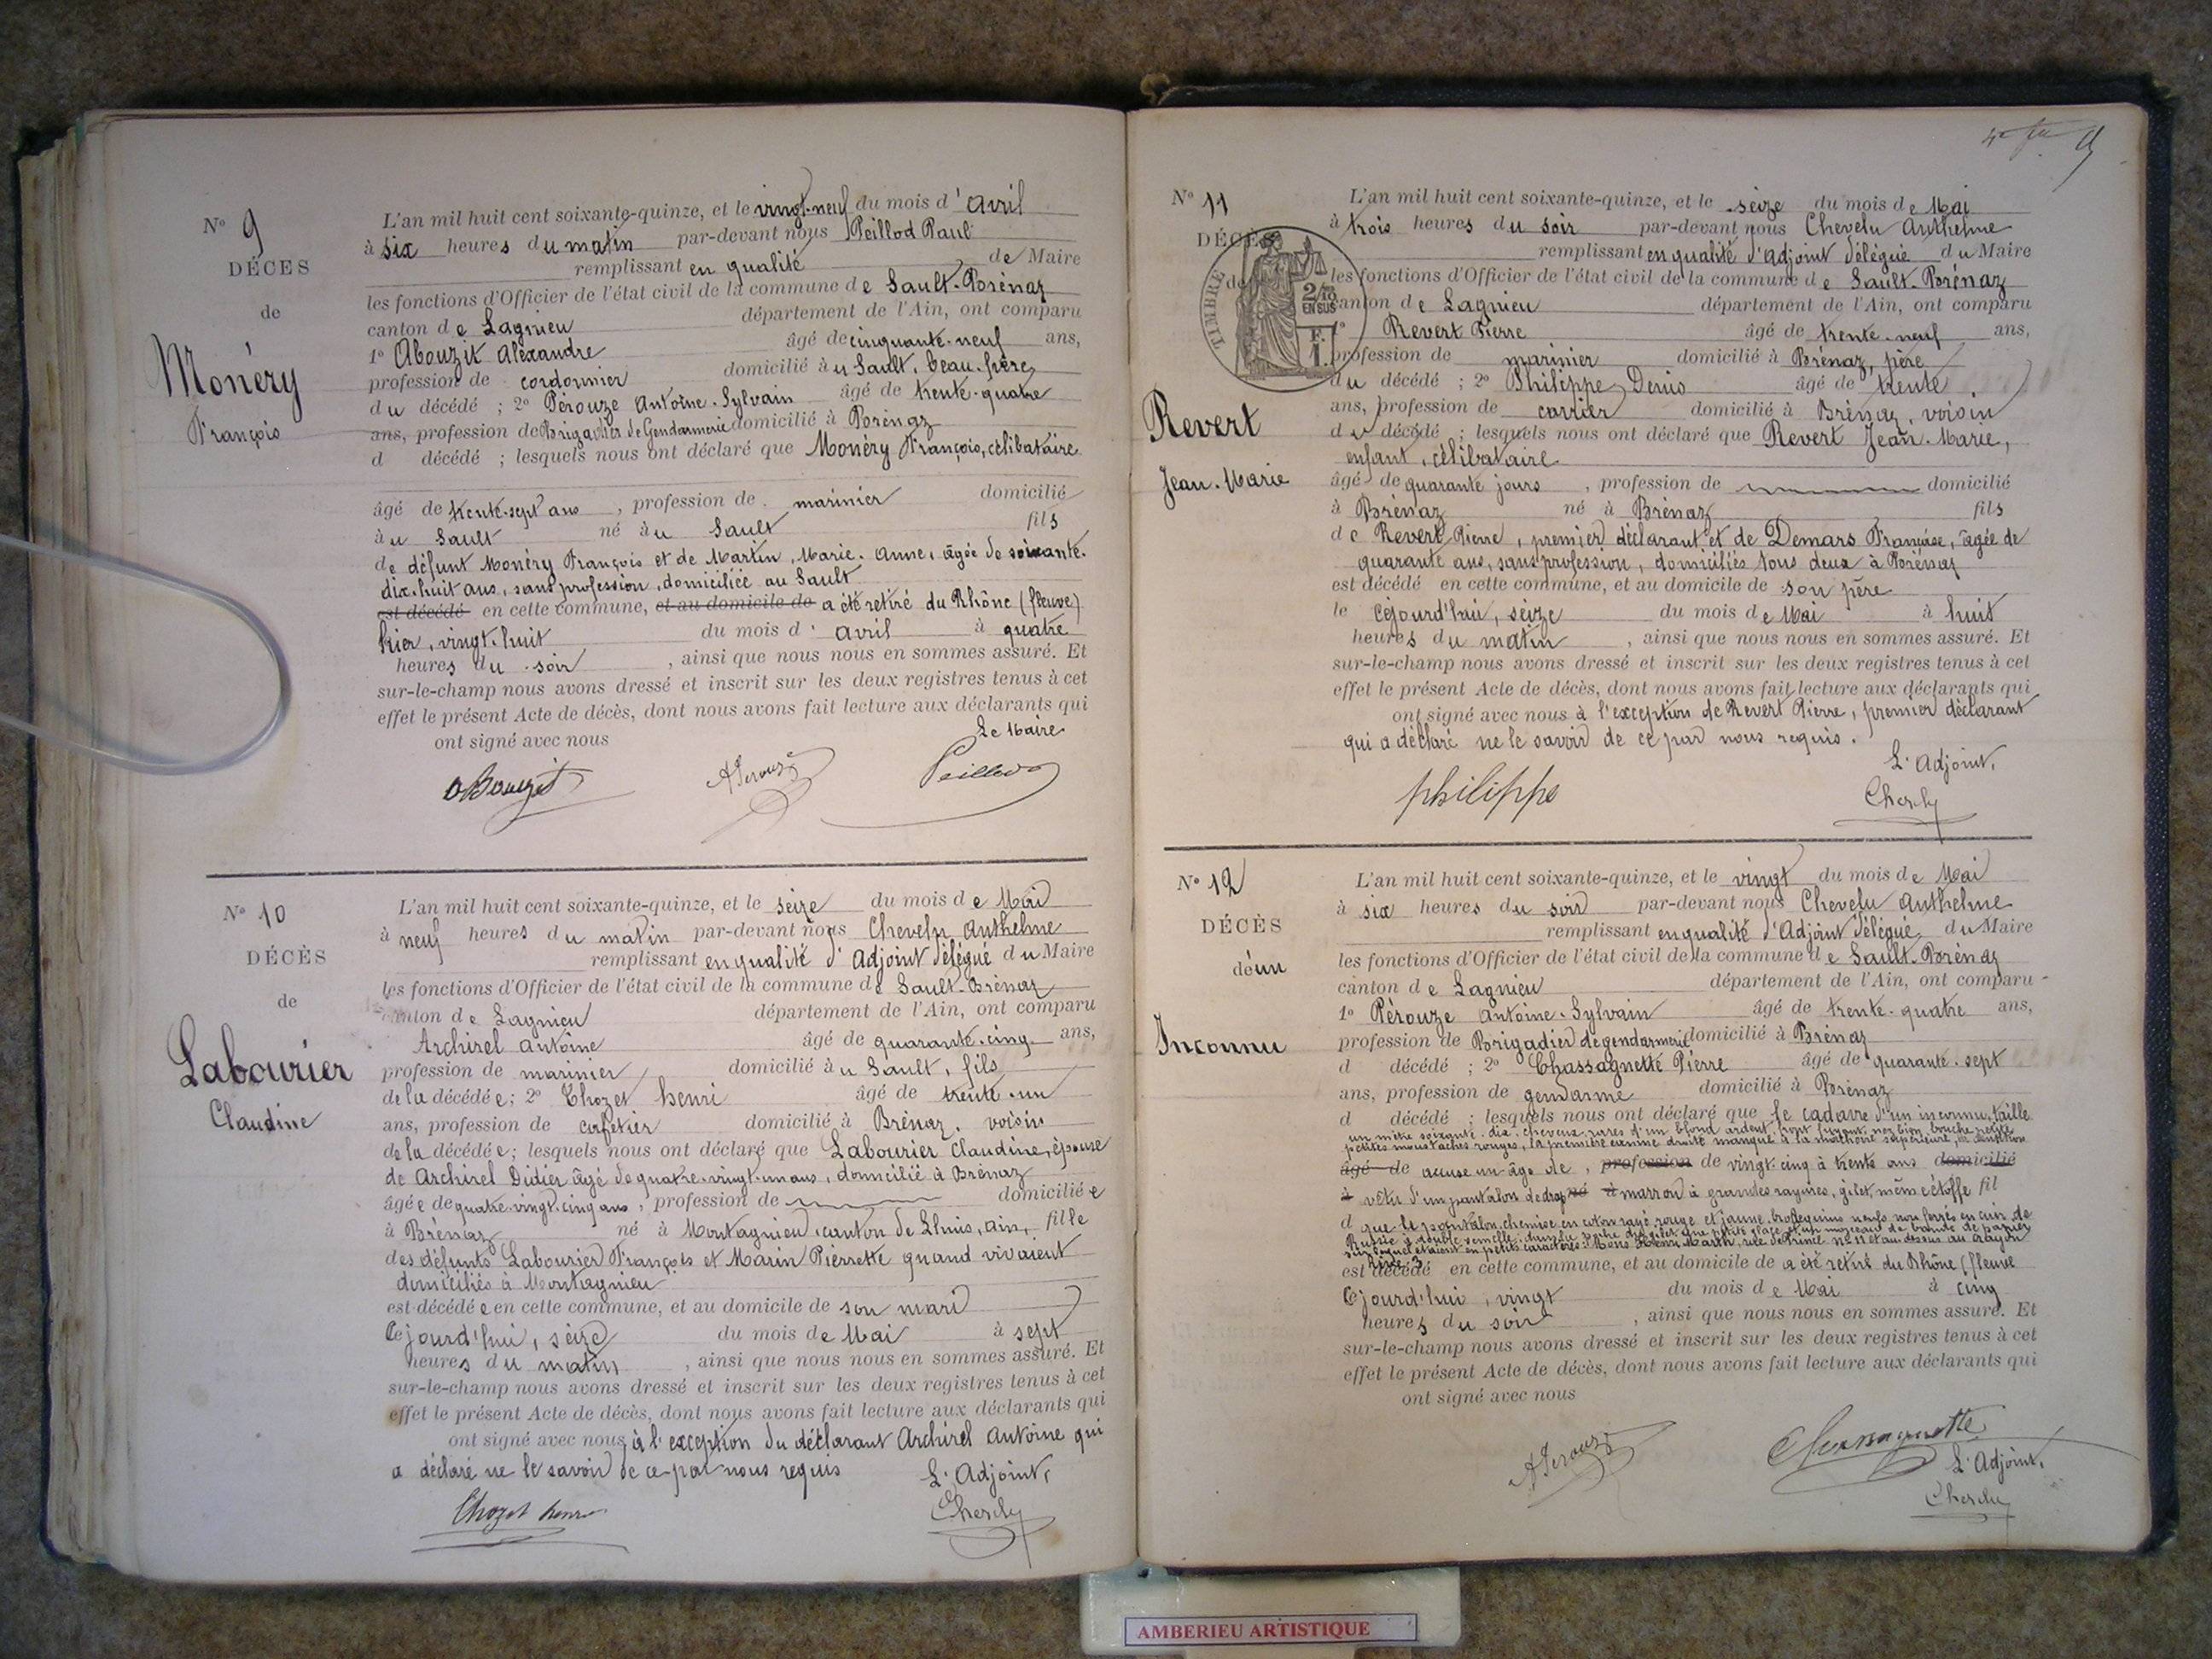 N° 9
DÉCÈS
de
Monéry
François
L'an mil huit cent soixante-quinze, et le vingt-neuf du mois d'avril
à six heures du matin par-devant nous Peillod Paul
remplissant en qualité de Maire
les fonctions d'Officier de l'état civil de la commune de Sault-Brénaz
canton de Lagnieu département de l'Ain, ont comparu
1° Abouzit Alexandre âgé de cinquante-neuf ans,
profession de cordonnier domicilié au Sault, beau-frère
du décédé ; 2° Pérouze Antoine-Sylvain âgé de trente-quatre
ans, profession de Brigadier de Gendarmerie domicilié à Brénaz
d décédé ; lesquels nous ont déclaré que Monéry François, célibataire
âgé de trente-sept ans, profession de marinier domicilié
au Sault né au Sault fils
de défunt Monéry François et de Martin, Marie-Anne, âgée de soixante-
dix-huit ans, sans profession, domiciliée au Sault
est décédé en cette commune, et au domicile de a été retiré du Rhône (fleuve)
hier, vingt-huit du mois d'avril à quatre
heures du soir, ainsi que nous nous en sommes assuré. Et
sur-le-champ nous avons dressé et inscrit sur les deux registres tenus à cet
effet le présent Acte de décès, dont nous avons fait lecture aux déclarants qui
ont signé avec nous
Le Maire
Abouzit APerouze Peillod
N° 10
DÉCÈS
de
Labourier
Claudine
L'an mil huit cent soixante-quinze, et le seize du mois de Mai
à neuf heures du matin par-devant nous Chevelu Anthelme
remplissant en qualité d'Adjoint délégué du Maire
les fonctions d'Officier de l'état civil de la commune de Sault-Brénaz
canton de Lagnieu département de l'Ain, ont comparu
Archirel Antoine âgé de quarante-cinq ans,
profession de marinier domicilié au Sault, fils
de la décédée ; 2° Chozet henri âgé de trente-un
ans, profession de cafetier domicilié à Brénaz, voisin
de la décédée ; lesquels nous ont déclaré que Labourier Claudine, épouse
de Archirel Didier âgé de quatre-vingt-un ans, domicilié à Brénaz
âgée de quatre-vingt-cinq ans, profession de domiciliée
à Brénaz né à Montagnieu, canton de Lhuis, ain, fille
des défunts Labourier François et Marin Pierrette quand vivaient
domiciliés à Montagnieu
est décédée en cette commune, et au domicile de son mari
Cejourd'hui, seize du mois de Mai à sept
heures du matin, ainsi que nous nous en sommes assuré. Et
sur-le-champ nous avons dressé et inscrit sur les deux registres tenus à cet
effet le présent Acte de décès, dont nous avons fait lecture aux déclarants qui
ont signé avec nous, à l'exception du déclarant Archirel Antoine qui
a déclaré ne le savoir de ce par nous requis
L'Adjoint,
Chozet henri Chevelu
N° 11
DÉCÈS
de
Revert
Jean-Marie
TIMBRE
2/10
EN SUS
F.
1.
L'an mil huit cent soixante-quinze, et le seize du mois de Mai
à trois heures du soir par-devant nous Chevelu Anthelme
remplissant en qualité d'Adjoint délégué du Maire
les fonctions d'Officier de l'état civil de la commune de Sault-Brénaz
canton de Lagnieu département de l'Ain, ont comparu
1° Revert Pierre âgé de trente-neuf ans,
profession de marinier domicilié à Brénaz, père
du décédé ; 2° Philippe, Denis âgé de trente
ans, profession de carrier domicilié à Brénaz, voisin
du décédé ; lesquels nous ont déclaré que Revert Jean-Marie,
enfant, célibataire
âgé de quarante jours, profession de domicilié
à Brénaz né à Brénaz fils
de Revert Pierre, premier déclarant et de Demars Françoise, âgée de
quarante ans, sans profession, domiciliés tous deux à Brénaz
est décédé en cette commune, et au domicile de son père
le cejourd'hui, seize du mois de Mai à huit
heures du matin, ainsi que nous nous en sommes assuré. Et
sur-le-champ nous avons dressé et inscrit sur les deux registres tenus à cet
effet le présent Acte de décès, dont nous avons fait lecture aux déclarants qui
ont signé avec nous à l'exception de Revert Pierre, premier déclarant
qui a déclaré ne le savoir de ce par nous requis.
L'Adjoint,
philippe Chevelu
N° 12
DÉCÈS
d'un
Inconnu
L'an mil huit cent soixante-quinze, et le vingt du mois de Mai
à six heures du soir par-devant nous Chevelu Anthelme
remplissant en qualité d'Adjoint délégué du Maire
les fonctions d'Officier de l'état civil de la commune de Sault-Brénaz
canton de Lagnieu département de l'Ain, ont comparu
1° Pérouze Antoine-Sylvain âgé de trente-quatre ans,
profession de Brigadier de gendarmerie domicilié à Brénaz
d décédé ; 2° Chassagnette Pierre âgé de quarante-sept
ans, profession de gendarme domicilié à Brénaz
d décédé ; lesquels nous ont déclaré que le cadavre d'un inconnu, taille
un mètre soixante-dix, cheveux rares d'un blond ardent, front fuyant, nez bien, bouche petite
petites moustaches rouges, la première canine droite manque à la mâchoire supérieure, dentition
âgé de accuse un âge de, profession de vingt-cinq à trente ans domicilié
à vêtu d'un pantalon de drap né à marron à grandes rayures, gilet même étoffe fil
d que le pantalon, chemise en coton rayé rouge et jaune, brodequins neufs non ferrés en cuir de
Russie à double semelle, dans la poche du gilet une petite glace et un morceau de bande de papier
sur lequel étaient en petits caractères : Mons Henri Marth, rue de Prince n° 11 et au dessus au crayon
est décédé en cette commune, et au domicile de a été retiré du Rhône (fleuve
Cejourd'hui, vingt du mois de Mai à cinq
heures du soir, ainsi que nous nous en sommes assuré. Et
sur-le-champ nous avons dressé et inscrit sur les deux registres tenus à cet
effet le présent Acte de décès, dont nous avons fait lecture aux déclarants qui
ont signé avec nous
APerouze Chassagnette
L'Adjoint,
Chevelu
AMBERIEU ARTISTIQUE